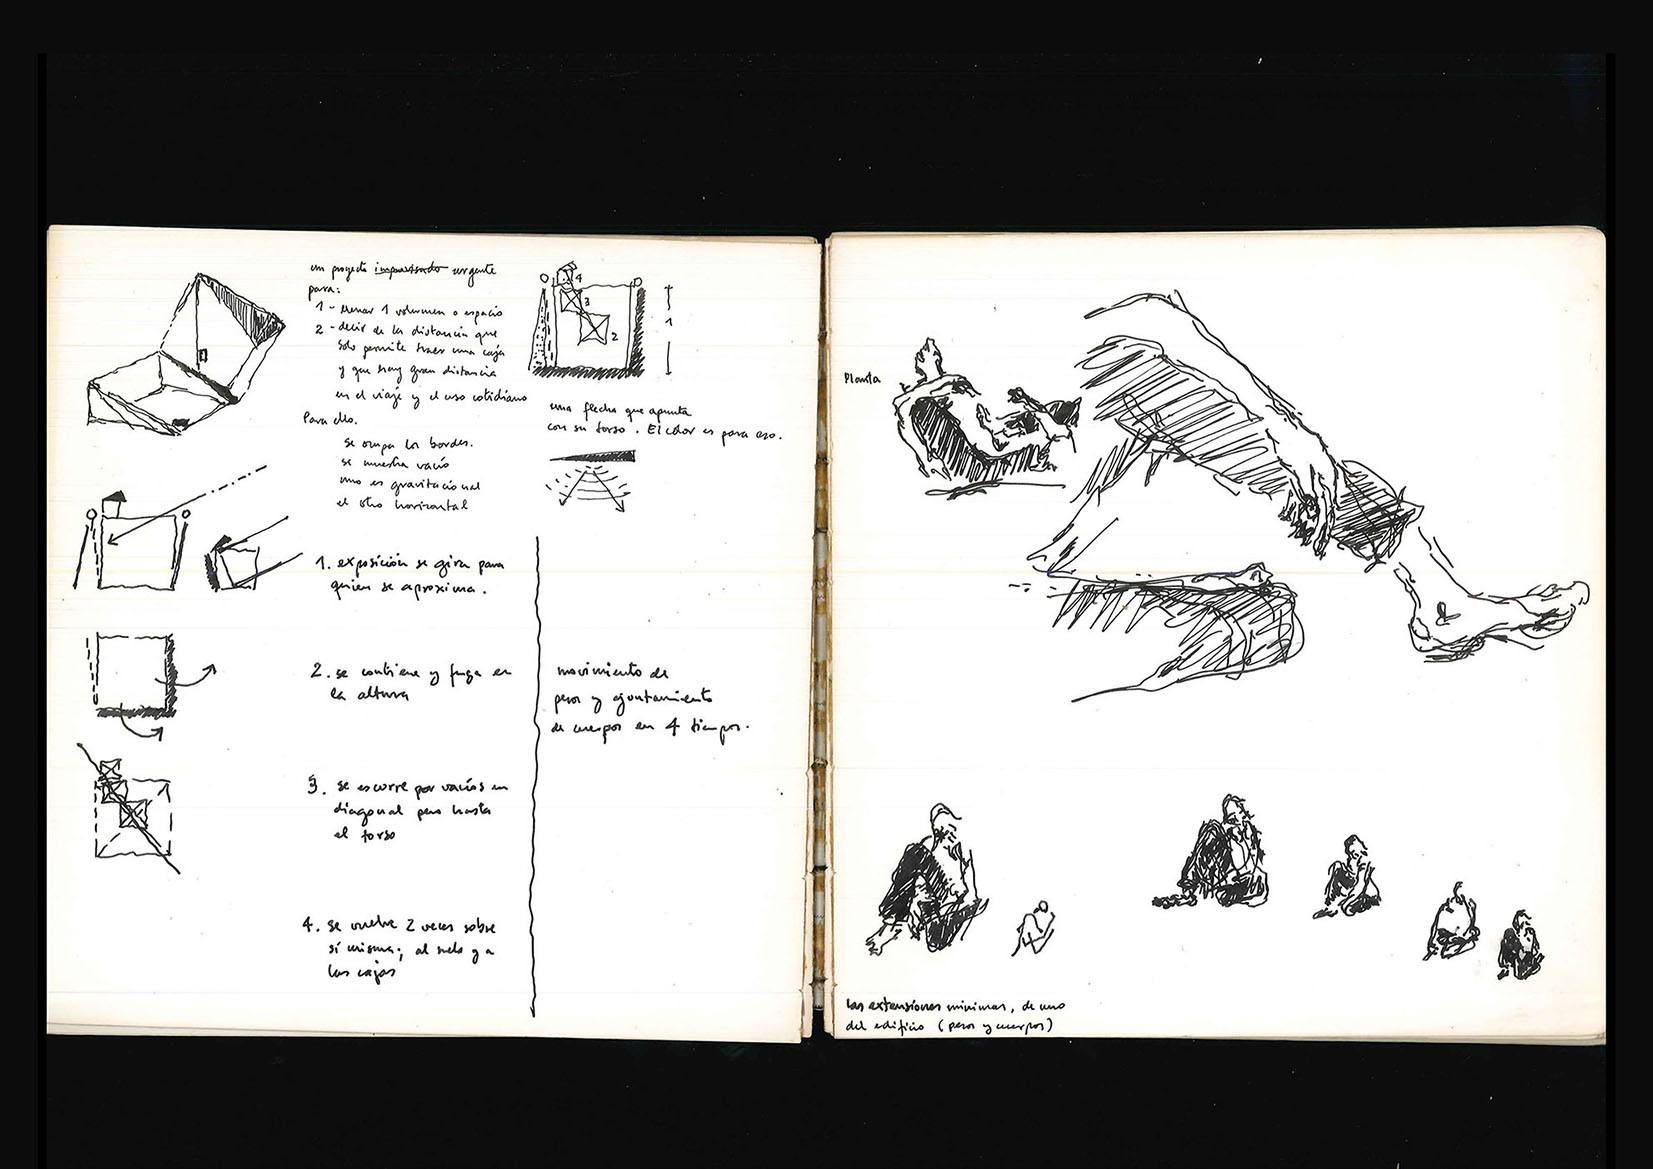 un proyecto improvisado urgente
para:
1 - llenar 1 volumen o espacio
2 - decir de la distancia que
solo permite traer una caja
y que hay gran distancia
en el viaje y el uso cotidiano
Para ello.
se ocupa los bordes.
se muestra vacío
uno es gravitacional
el otro horizontal
4
3
2
1
una flecha que apunta
con su torso. El color es para eso.
1. exposición se gira para
quien se aproxima.
2. se contiene y fuga en
la altura
3. se escurre por vacíos en
diagonal pero hasta
el torso
4. se vuelve 2 veces sobre
sí misma; al suelo y a
las cajas
movimiento de
pesos y ajuntamiento
de cuerpos en 4 tiempos.
Planta
las extensiones mínimas, de uno
del edificio (pesos y cuerpos)